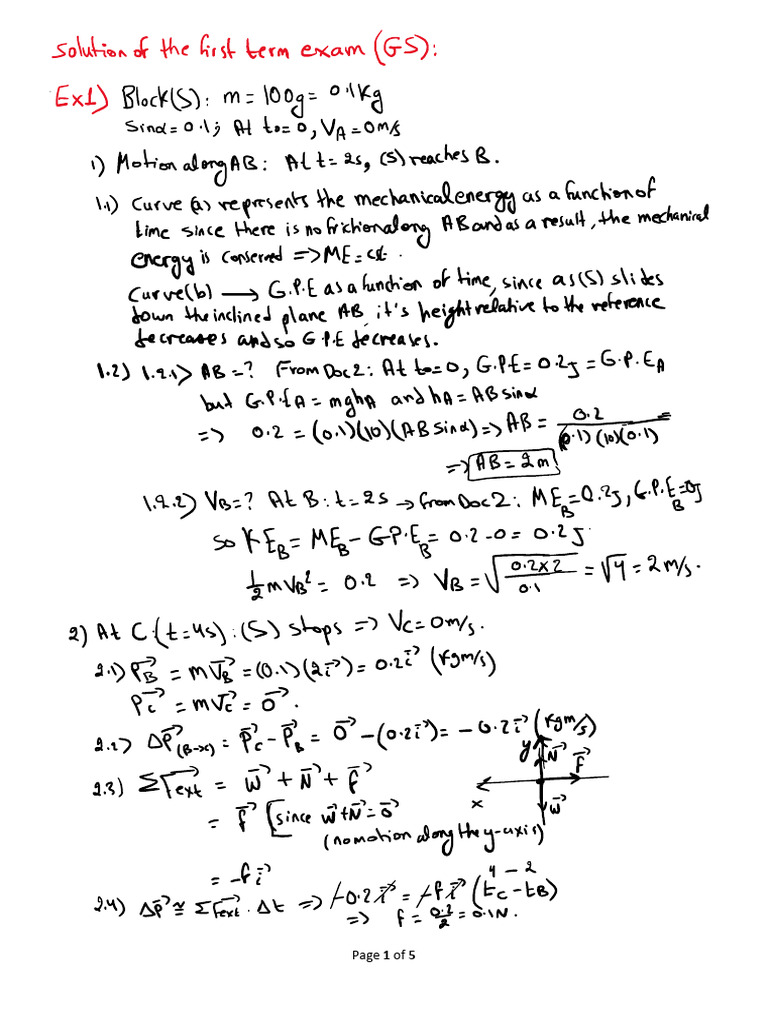 Solution of the first term exam (GS):
Ex1) Block(S): m = 100g = 0.1Kg
Sinα = 0.1; At t₀ = 0, V_A = 0 m/s
1) Motion along AB: At t = 2s, (S) reaches B.
1.1) Curve (a) represents the mechanical energy as a function of
time since there is no friction along AB and as a result, the mechanical
energy is conserved => ME = cst.
Curve (b) → G.P.E as a function of time, since as (S) slides
down the inclined plane AB, it's height relative to the reference
decreases and so G.P.E decreases.
1.2) 1.2.1) AB = ? From Doc2: At t₀ = 0, G.P.E = 0.2J = G.P.E_A
but G.P.E_A = mgh_A and h_A = AB sinα
=> 0.2 = (0.1)(10)(AB sinα) => AB = 0.2 / (0.1)(10)(0.1) =
=> AB = 2m
1.2.2) V_B = ? At B: t = 2s → from Doc2: ME_B = 0.2J, G.P.E_B = 0J
so KE_B = ME_B - G.P.E_B = 0.2 - 0 = 0.2J.
½ m V_B² = 0.2 => V_B = √(0.2 x 2 / 0.1) = √4 = 2 m/s.
2) At C: (t = 4s): (S) stops => V_C = 0 m/s.
2.1) P⃗_B = m V⃗_B = (0.1)(2i⃗) = 0.2i⃗ (kgm/s)
P⃗_C = m V⃗_C = 0⃗.
2.2) ΔP⃗_(B→C) = P⃗_C - P⃗_B = 0⃗ - (0.2i⃗) = -0.2i⃗ (kgm/s)
2.3) ΣF⃗ext = W⃗ + N⃗ + f⃗
y N⃗ f⃗
x W⃗
= f⃗ [since W⃗ + N⃗ = 0⃗
(no motion along the y-axis)
= -f i⃗
4 - 2
2.4) ΔP⃗ ≅ ΣF⃗ext . Δt => -0.2i⃗ = -f i⃗ (t_C - t_B)
=> f = 0.2/2 = 0.1N.
Page 1 of 5